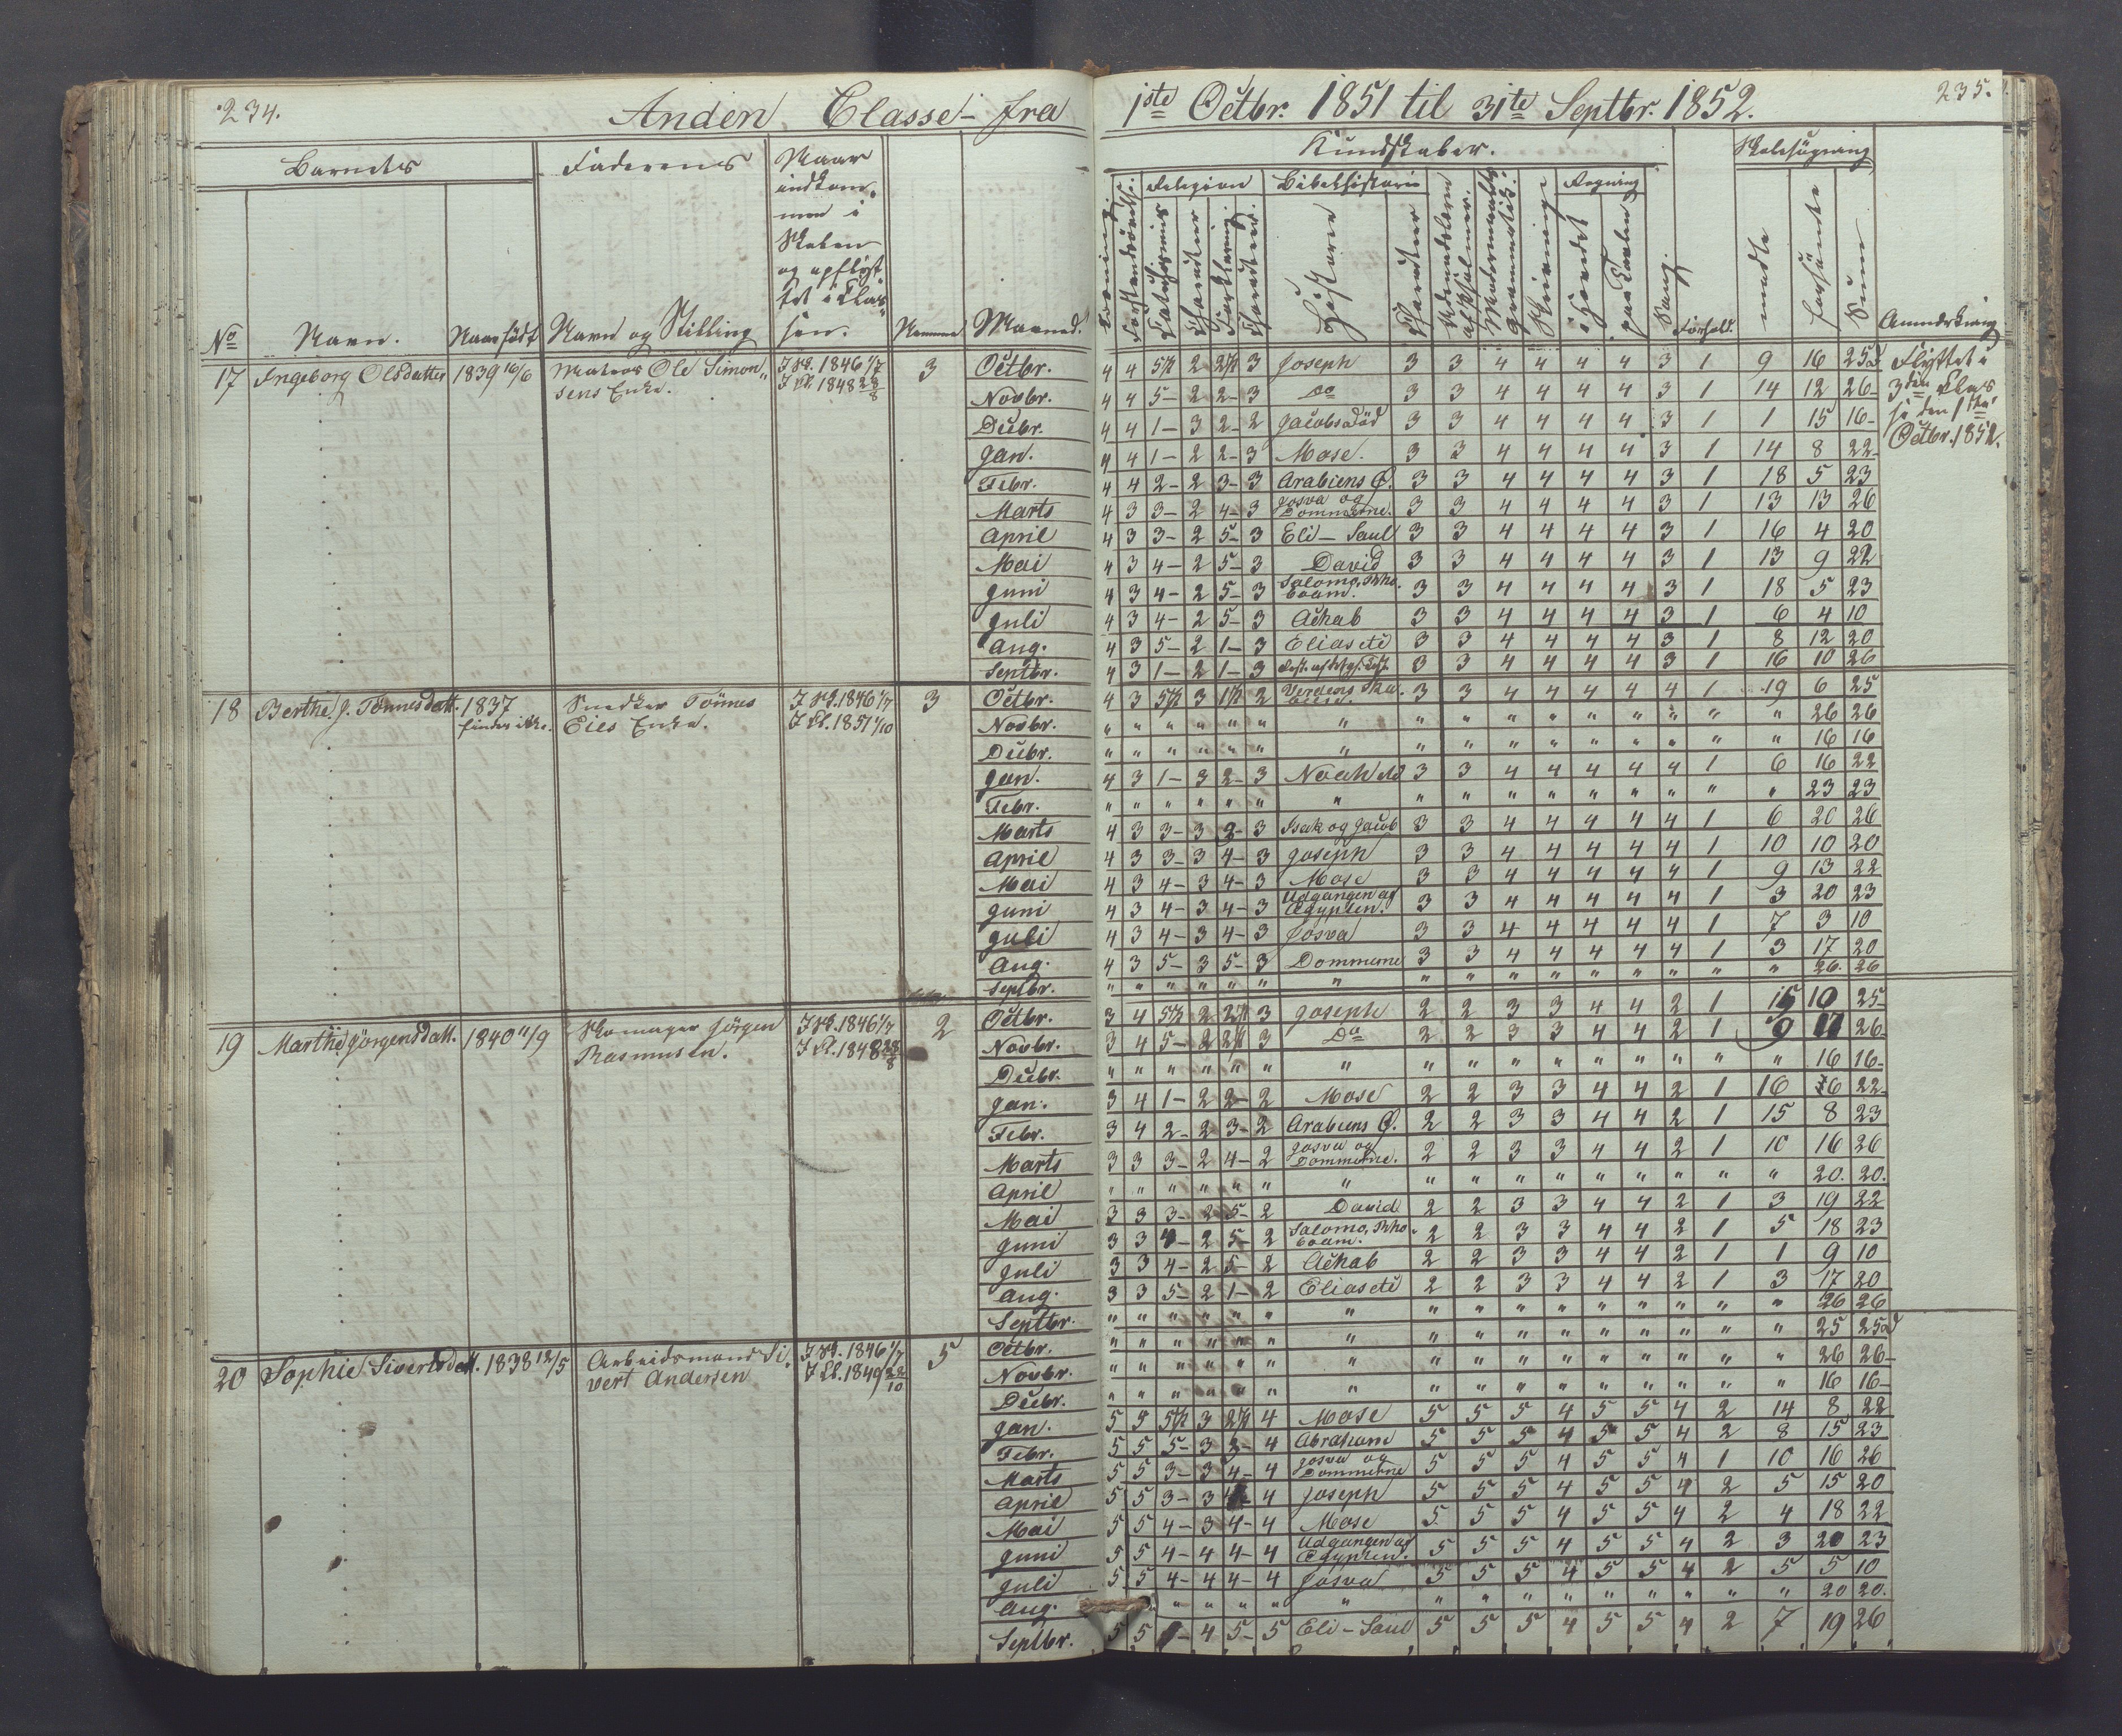 234.
Anden Classe - fra
1ste Octbr. 1851 til 31te Septbr. 1852.
235.
Barnets
Faderens
Naar indkommen i Skolen og opflyttet i Classen.
Nummer
Maaned.
No
Navn.
Naar født
Navn og Stilling
Kundskaber.
Religion
Bibelhistorie
Regning
Sang.
Forhold.
Skolesøgning
mødte
forsømte
Sum
Anmærkning
17 Ingeborg Olsdatter 1839 16/6 Matros Ole Simonsens Enke. I Sk. 1846 1/7 I Cl. 1848 28/8 3
Octbr. 4 4 5 1/2 2 2 1/2 3 Joseph 3 3 4 4 4 4 3 1 9 16 25
Novbr. 4 4 5- 2 2- 3 Do 3 3 4 4 4 4 3 1 14 12 26
Decbr. 4 4 1- 3 2- 2 Jacobs død 3 3 4 4 4 4 3 1 1 15 16-
Jan. 4 4 1- 2 2- 3 Mose. 3 3 4 4 4 4 3 1 14 8 22
Febr. 4 4 2- 2 3- 3 Arabiens Ø. 3 3 4 4 4 4 3 1 18 5 23
Marts 4 3 3- 2 4- 3 Josva og Dommerne. 3 3 4 4 4 4 3 1 13 13 26
April 4 3 3- 2 5- 3 Eli - Saul 3 3 4 4 4 4 3 1 16 4 20
Mai 4 3 4- 2 5- 3 David 3 3 4 4 4 4 3 1 13 9 22
Juni 4 3 4- 2 5- 3 Salomo, Rhoboam. 3 3 4 4 4 4 3 1 18 5 23
Juli 4 3 4- 2 5- 3 Achab 3 3 4 4 4 4 3 1 6 4 10
Aug. 4 3 5- 2 1- 3 Elias etc 3 3 4 4 4 4 3 1 8 12 20
Septbr. 4 3 1- 2 1- 3 3 3 4 4 4 4 3 1 16 10 26
Flyttet i 3die Classe den 1ste Octbr. 1852.
18 Berthe J. Tønnesdatt. 1837 findes ikke. Snedker Tönnes Eies Enke. I Sk. 1846 1/7 I Cl. 1851 1/10 3
Octbr. 4 3 5 1/2 3 1 1/2 2 Verdens Ska. 3 3 4 4 4 4 4 1 19 6 25
Novbr. " " " " " " " " " " " " " " " " 26 26
Decbr. " " " " " " " " " " " " " " " " 16 16
Jan. 4 3 1- 3 2- 3 Noah 3 3 4 4 4 4 4 1 6 16 22
Febr. " " " " " " " " " " " " " " " " 23 23
Marts 4 3 3- 3 2- 3 Isak og Jacob 3 3 4 4 4 4 4 1 6 20 26
April 4 3 3- 3 4- 3 Joseph 3 3 4 4 4 4 4 1 10 10 20
Mai 4 3 4- 3 4- 3 Mose 3 3 4 4 4 4 4 1 9 13 22
Juni 4 3 4- 3 4- 3 Udgangen af Ægypten. 3 3 4 4 4 4 4 1 3 20 23
Juli 4 3 4- 3 4- 3 Josva 3 3 4 4 4 4 4 1 7 3 10
Aug. 4 3 5- 3 5- 3 Dommerne 3 3 4 4 4 4 4 1 3 17 20
Septbr. " " " " " " " " " " " " " " " " 26. 26
19 Marthe Jörgensdatt. 1840 11/9 Skomager Jörgen Rasmusen. I Sk. 1846 1/7 I Cl. 1848 28/8 2
Octbr. 3 4 5 1/2 2 2 1/2 3 Joseph 2 2 3 3 4 4 2 1 15 10 25
Novbr. 3 4 5- 2 2 1/2 3 Do 2 2 3 3 4 4 2 1 9 17 26
Decbr. " " " " " " " " " " " " " " " " 16 16-
Jan. 3 4 1- 2 2- 2 Mose 2 2 3 3 4 4 2 1 16 6 22
Febr. 3 4 2- 2 3- 2 Arabiens Ø. 2 2 3 3 4 4 2 1 15 8 23
Marts 3 3 3- 2 4- 2 Josva og Dommerne. 2 2 3 3 4 4 2 1 10 16 26
April " " " " " " " " " " " " " " " " 20. 20.
Mai 3 3 3- 2 5- 2 David 2 2 3 3 4 4 2 1 3 19 22
Juni 3 3 4- 2 5- 2 Salomo, Rhoboam. 2 2 3 3 4 4 2 1 5 18 23
Juli 3 3 4- 2 5- 2 Achab 2 2 3 3 4 4 2 1 1 9 10
Aug. 3 3 5- 2 1- 2 Elias etc 2 2 3 3 4 4 2 1 3 17 20
Septbr. " " " " " " " " " " " " " " " " 26 26
20 Sophie Sivertsdatt. 1838 12/5 Arbeidsmand Sivert Andersen I Sk. 1846 1/7 I Cl. 1849 22/10 5
Octbr. " " " " " " " " " " " " " " " " 25 25
Novbr. " " " " " " " " " " " " " " " " 26 26-
Decbr. " " " " " " " " " " " " " " " " 16 16-
Jan. 5 5 5 1/2 3 2 1/2 4 Mose 5 5 5 4 5 5 4 2 14 8 22
Febr. 5 5 5- 3 3- 4 Abraham 5 5 5 4 5 5 4 2 8 15 23
Marts 5 5 3- 3 4- 4 Josva og Dommerne 5 5 5 4 5 5 4 1 10 16 26
April 5 5 3- 3 4- 4 Joseph 5 5 5 4 5 5 4 2 5 15 20
Mai 5 5 4- 3 4- 4 Mose 5 5 5 4 5 5 4 2 4 18 22
Juni 5 5 4- 4 4- 4 Udgangen af Ægypten. 5 5 5 4 5 5 4 2 3 20 23
Juli 5 5 4- 4 4- 4 Josva 5 5 5 4 5 5 4 2 5 5 10
Aug. " " " " " " " " " " " " " " 20 20.
Septbr. 5 5 4 5- 5 Eli - Saul 5 5 5 4 5 5 4 2 7 19 26